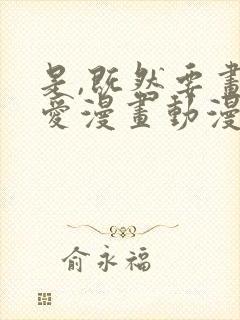 是,既然要畫
愛漫畫動漫
俞永福